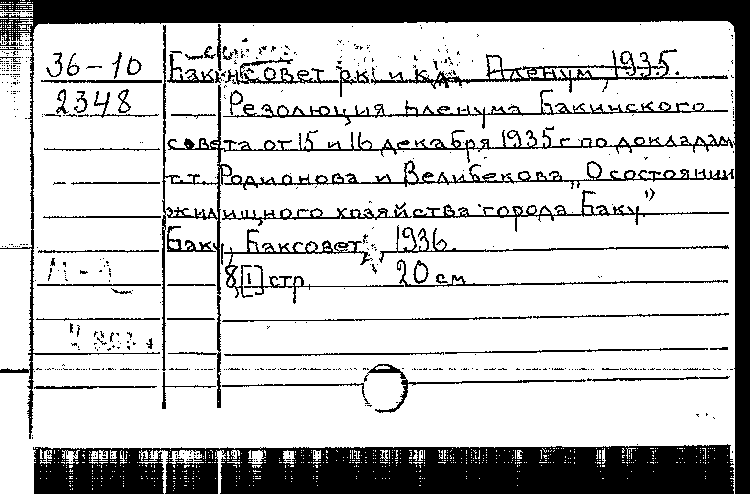 36-10 Бакинсовет рк. и кд. Пленум, 1935.
2348 Резолюция пленума Бакинского
совета от 15 и 16 декабря 1935 г по докладам
т.т. Родионова и Велибекова „О состоянии
жилищного хозяйства города Баку"
Баку, Баксовет, 1936.
8,[1] стр. 20 см